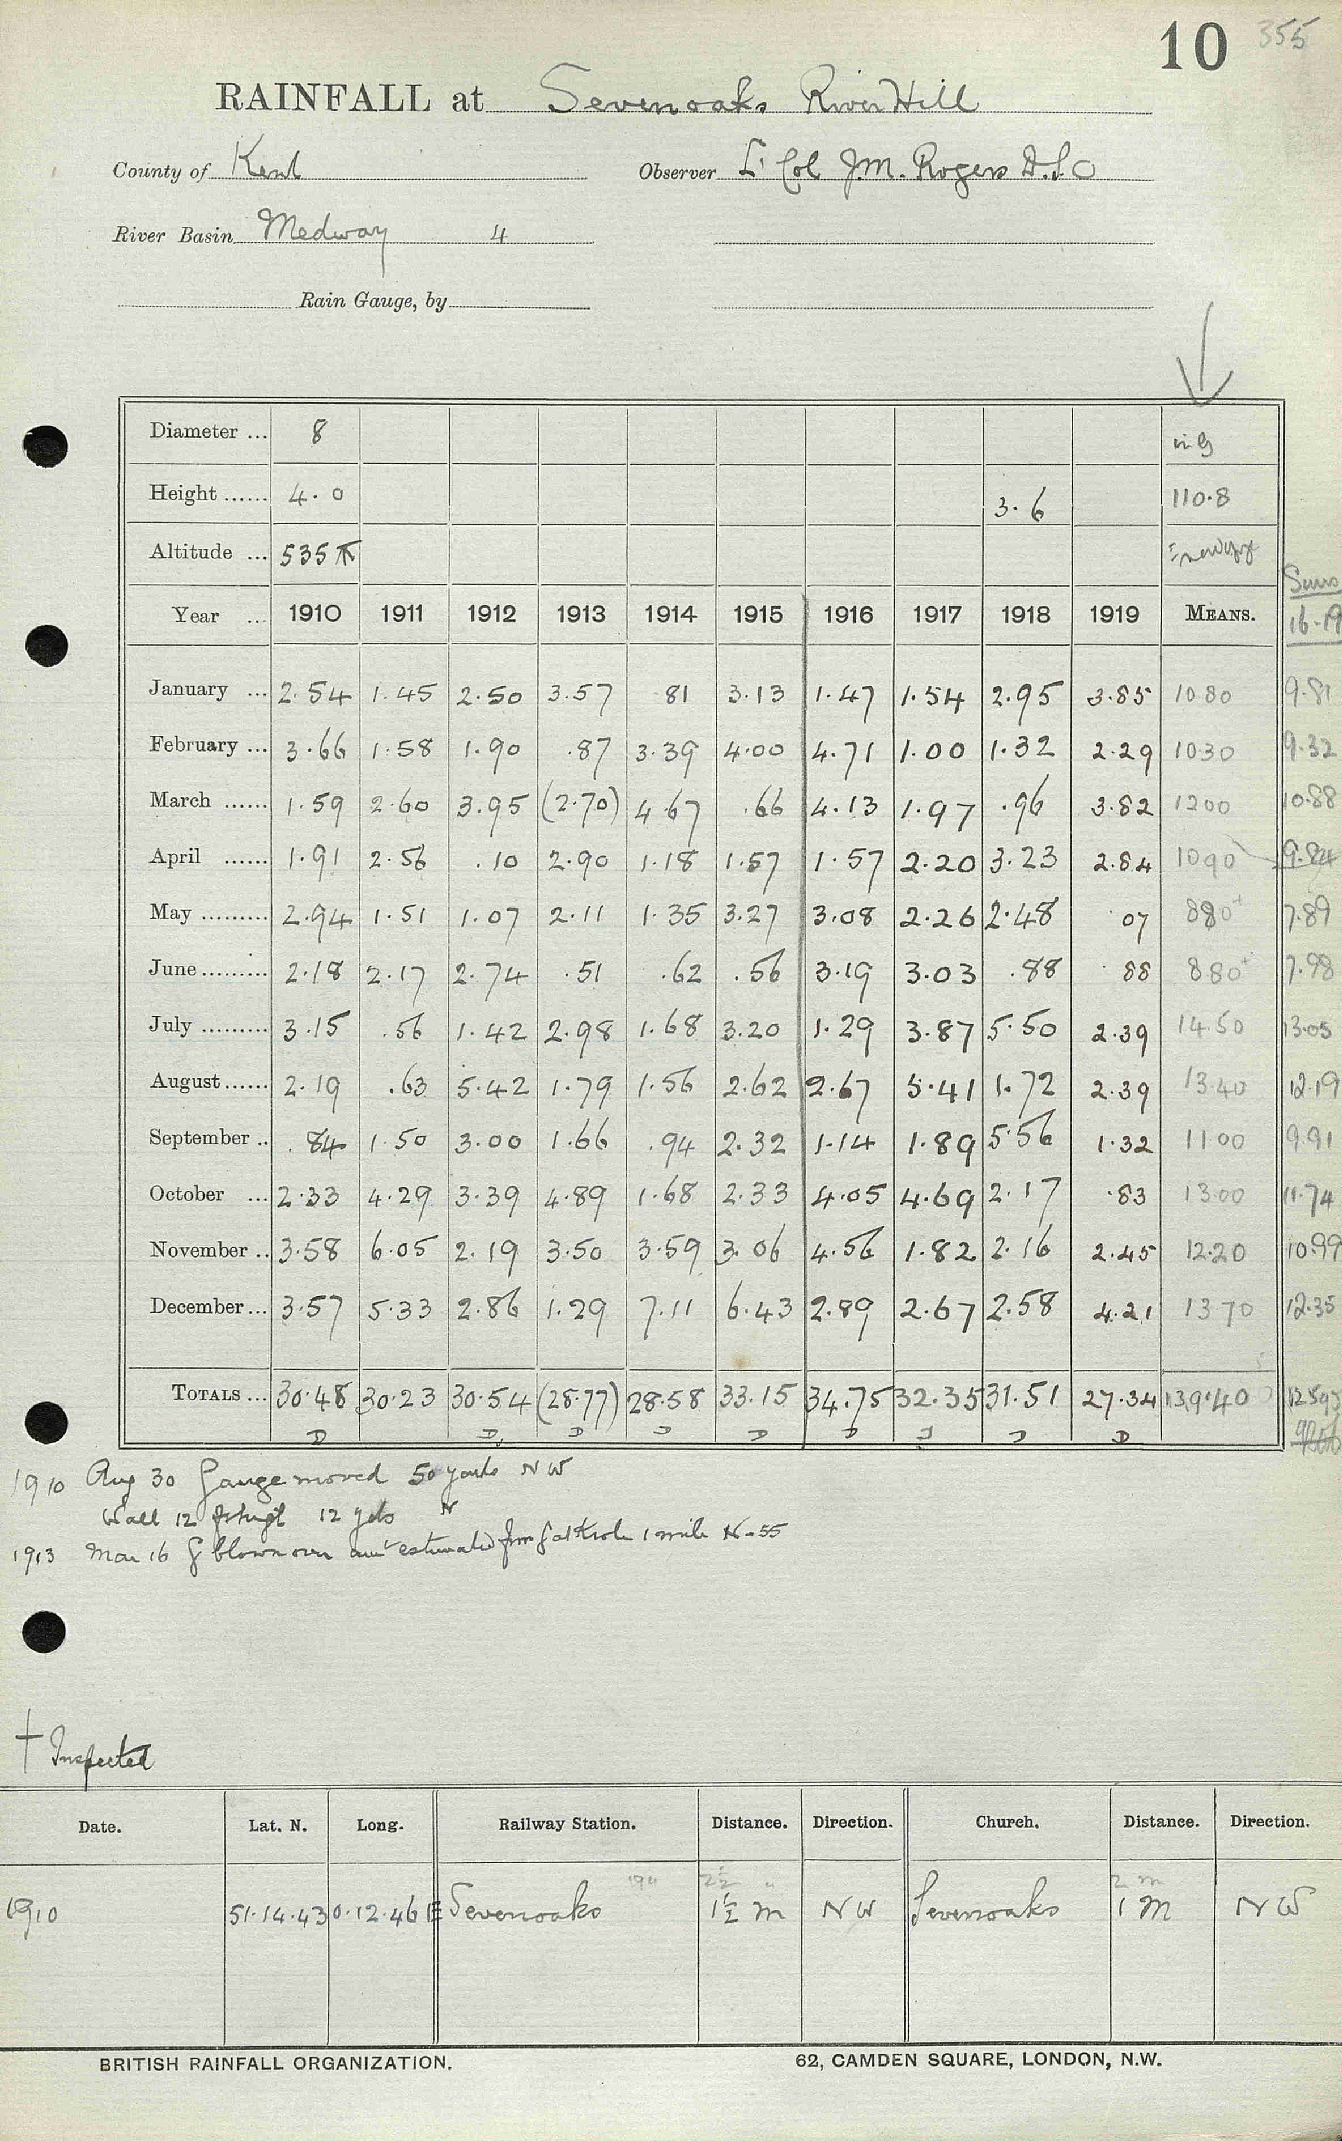 10 355
RAINFALL at Sevenoaks River Hill
County of Kent Observer Lt Col J.M. Rogers D.S.O
River Basin Medway 4
Rain Gauge, by
Diameter ... 8 in G
Height ...... 4.0 3.6 110.8
Altitude ... 535
Sums
Year ... 1910 1911 1912 1913 1914 1915 1916 1917 1918 1919 MEANS. 16-19
January ... 2.54 1.45 2.50 3.57 81 3.13 1.47 1.54 2.95 3.85 10 80 9.81
February ... 3.66 1.58 1.90 .87 3.39 4.00 4.71 1.00 1.32 2.29 10 30 9.32
March ...... 1.59 2.60 3.95 (2.70) 4.67 .66 4.13 1.97 .96 3.82 12 00 10.88
April ...... 1.91 2.56 .10 2.90 1.18 1.57 1.57 2.20 3.23 2.84 10 90 9.84
May ......... 2.94 1.51 1.07 2.11 1.35 3.27 3.08 2.26 2.48 07 8 80+ 7.89
June ......... 2.18 2.17 2.74 .51 .62 .56 3.19 3.03 .88 88 8 80+ 7.98
July ......... 3.15 .56 1.42 2.98 1.68 3.20 1.29 3.87 5.50 2.39 14.50 13.05
August ...... 2.19 .63 5.42 1.79 1.56 2.62 2.67 5.41 1.72 2.39 13.40 12.19
September .. .84 1.50 3.00 1.66 .94 2.32 1.14 1.89 5.56 1.32 11 00 9.91
October ... 2.33 4.29 3.39 4.89 1.68 2.33 4.05 4.69 2.17 .83 13 00 11.74
November .. 3.58 6.05 2.19 3.50 3.59 3.06 4.56 1.82 2.16 2.45 12.20 10.99
December ... 3.57 5.33 2.86 1.29 7.11 6.43 2.89 2.67 2.58 4.21 13 70 12.35
TOTALS ... 30.48 30.23 30.54 (28.77) 28.58 33.15 34.75 32.35 31.51 27.34 139.40 125.93
D D D D D D D D D
1910 Aug 30 Gauge moved 50 yards NW
Wall 12 ft high 12 yds N
1913 Mar 16 G blown over amt estimated from 1 mile N-55
† Inspected
Date. Lat. N. Long. Railway Station. Distance. Direction. Church. Distance. Direction.
2½ " 2 m
1910 51.14.43 0.12.46 E Sevenoaks 1½ m NW Sevenoaks 1 M NW
BRITISH RAINFALL ORGANIZATION. 62, CAMDEN SQUARE, LONDON, N.W.